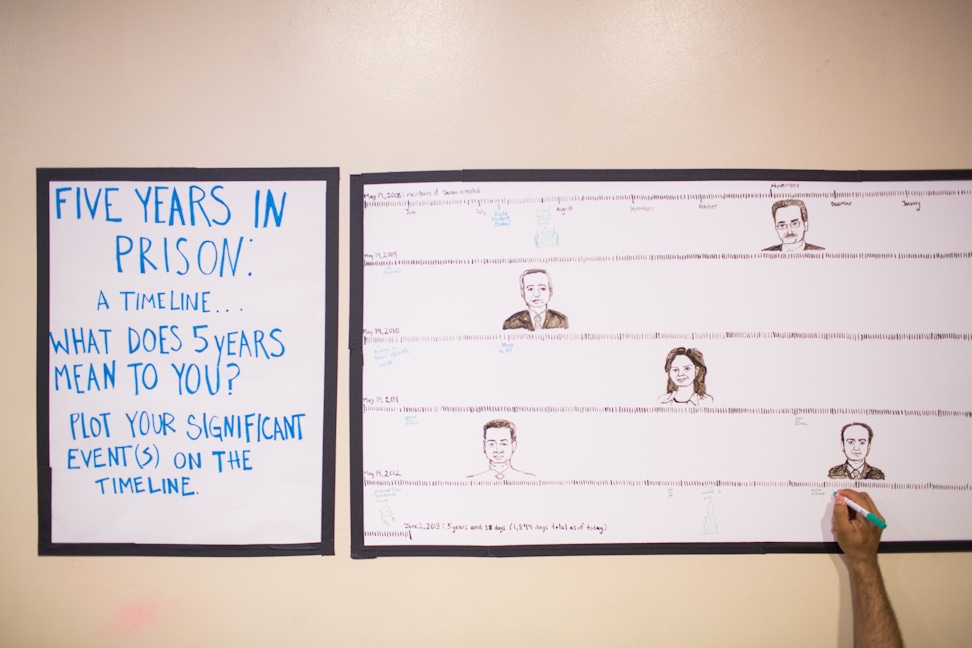 FIVE YEARS IN
PRISON:
A TIMELINE...
WHAT DOES 5 YEARS
MEAN TO YOU?
PLOT YOUR SIGNIFICANT
EVENT(S) ON THE
TIMELINE.
May 14, 2008: members of Yaran arrested
November
June
July
August
September
October
December
January
May 14, 2009
May 14, 2010
May 14, 2011
May 14, 2012
June 1, 2013: 5 years and 18 days (1,844 days total as of today)